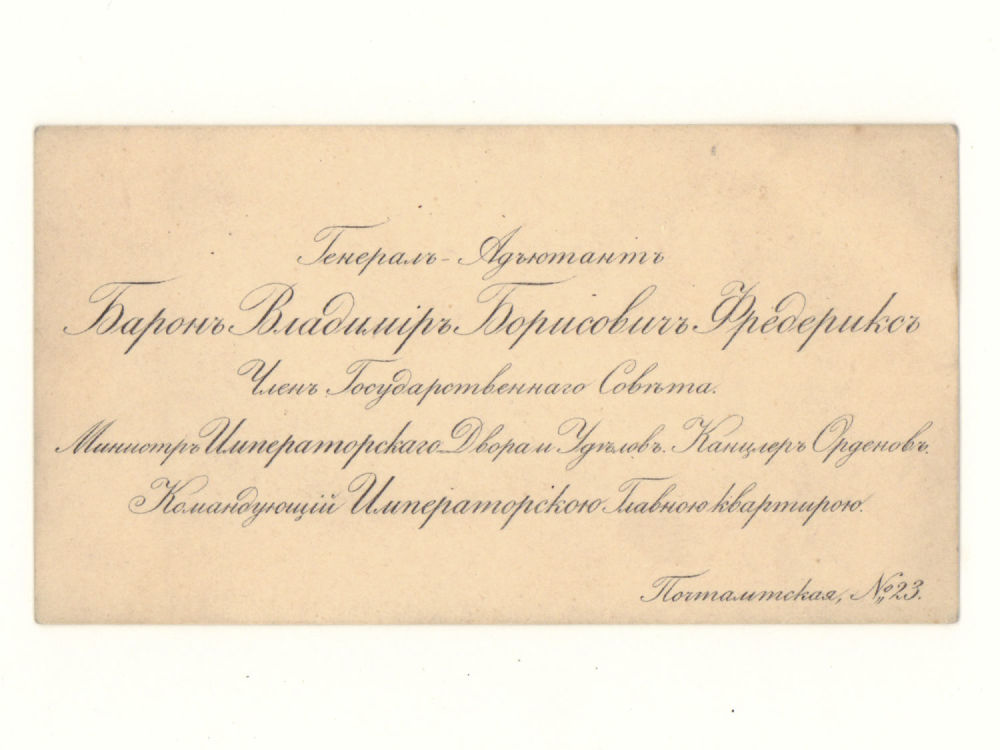 Генералъ-Адъютантъ
Баронъ Владимiръ Борисовичъ Фредериксъ
Членъ Государственнаго Совѣта.
Министръ Императорскаго Двора и Удѣловъ. Канцлеръ Орденовъ.
Командующiй Императорскою Главною квартирою.
Почтамтская, №23.